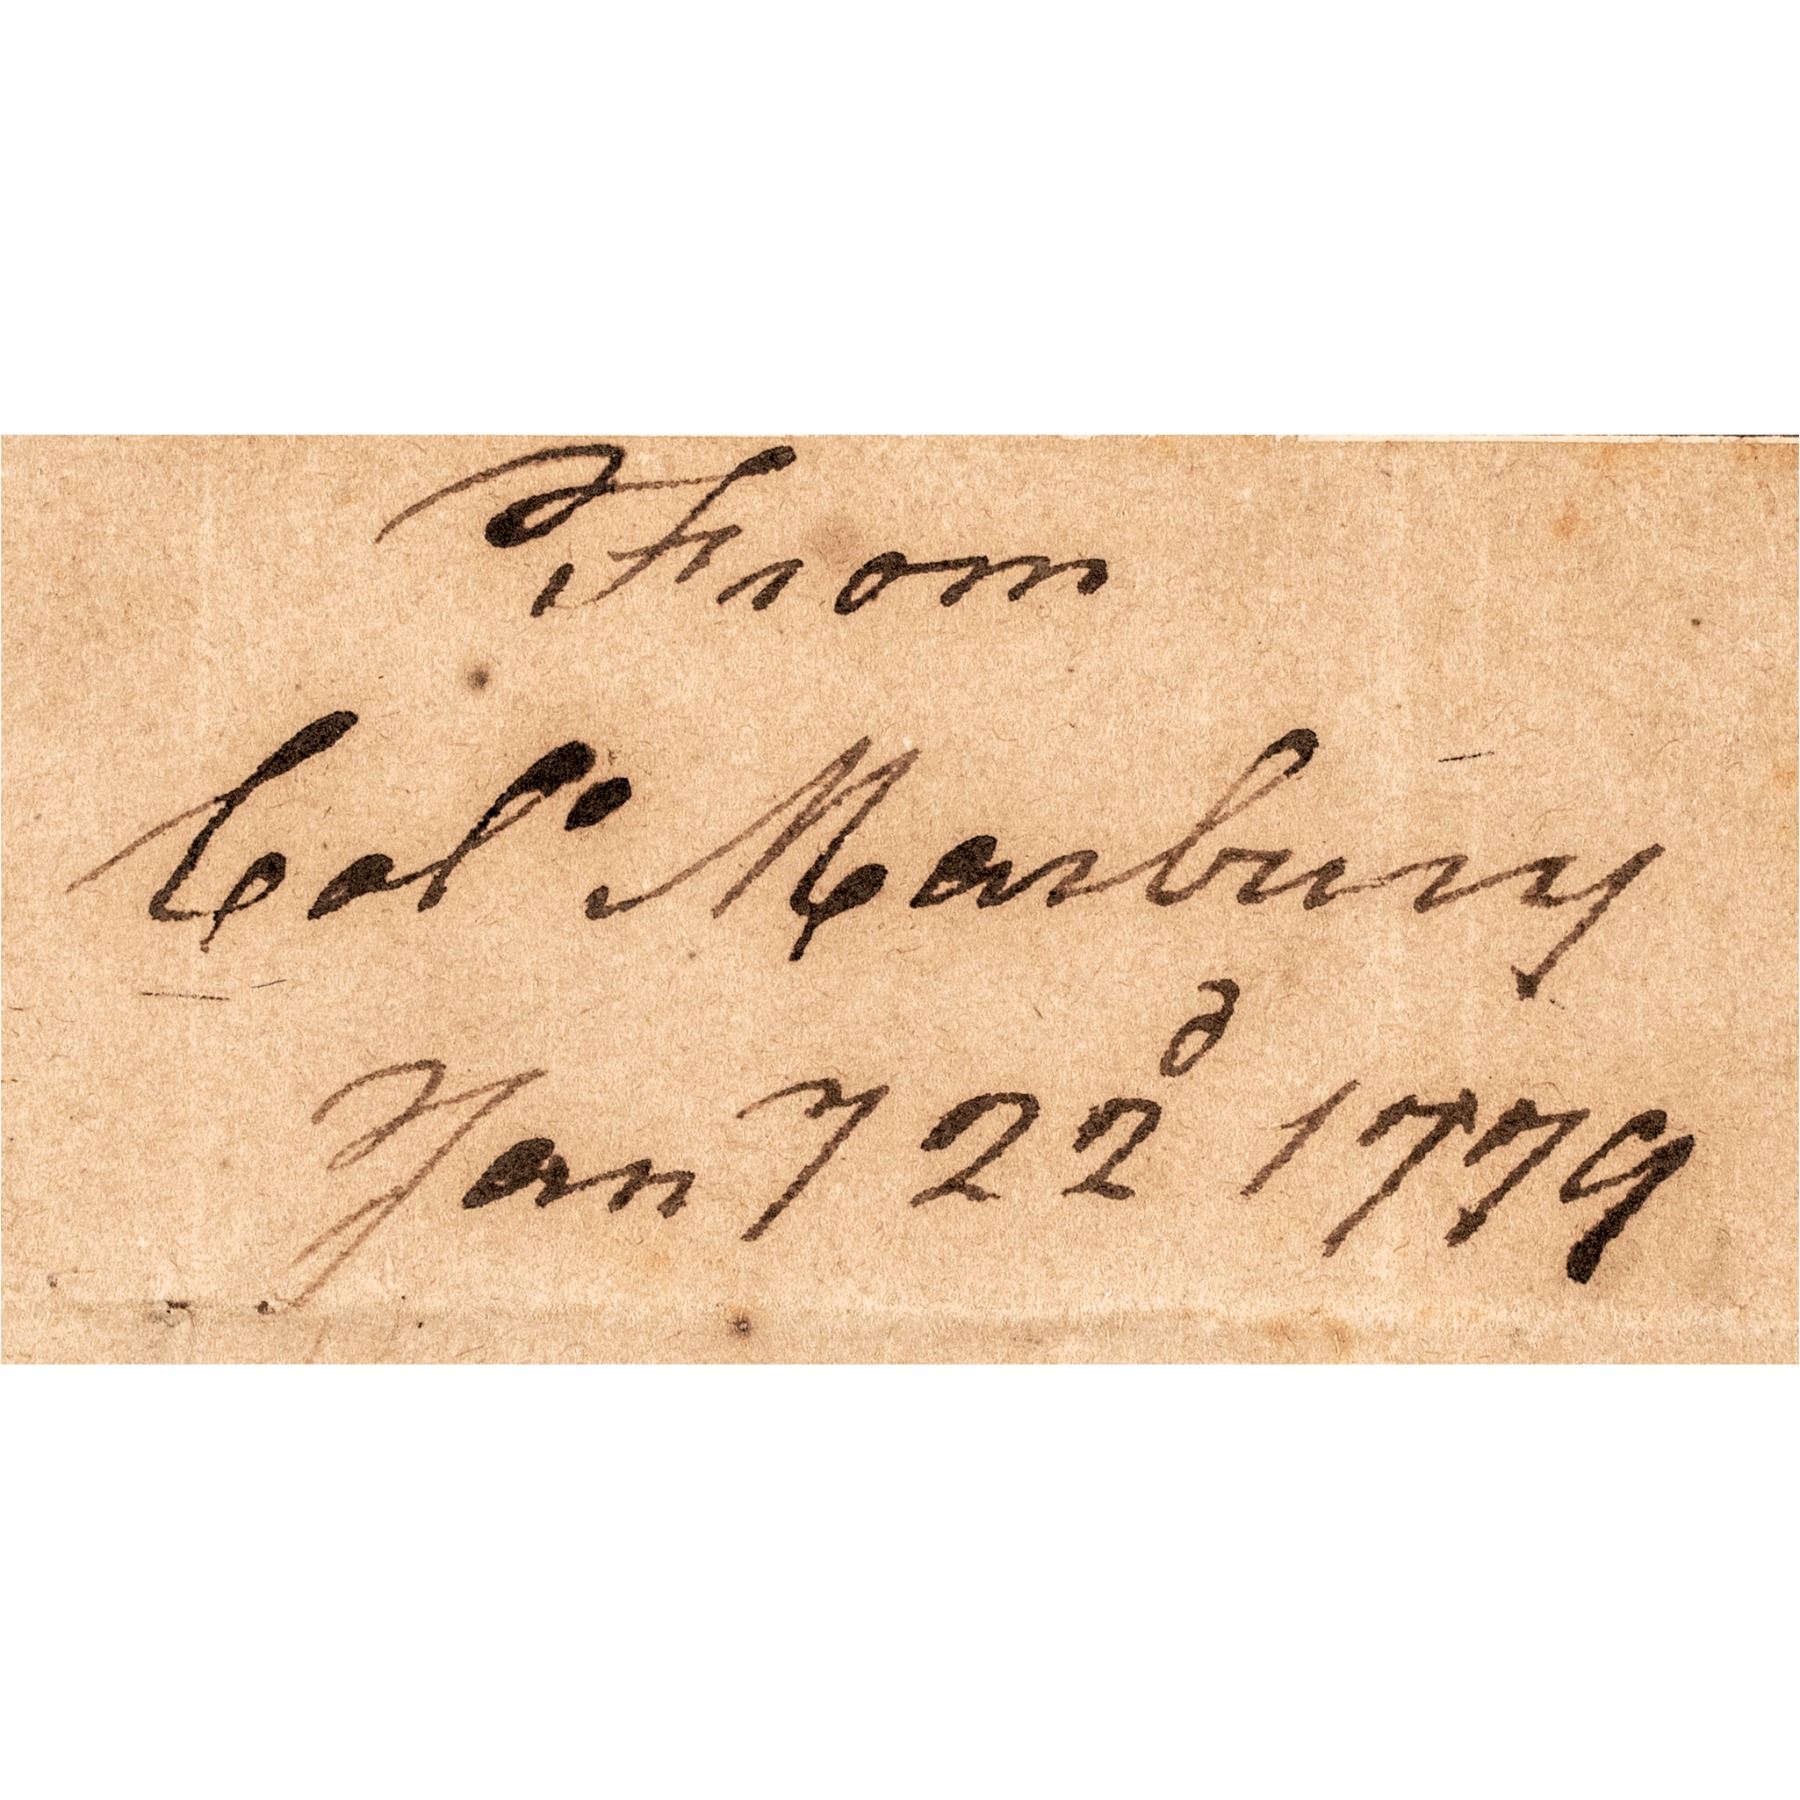 From
Colo Marbury
Jany 22d 1779